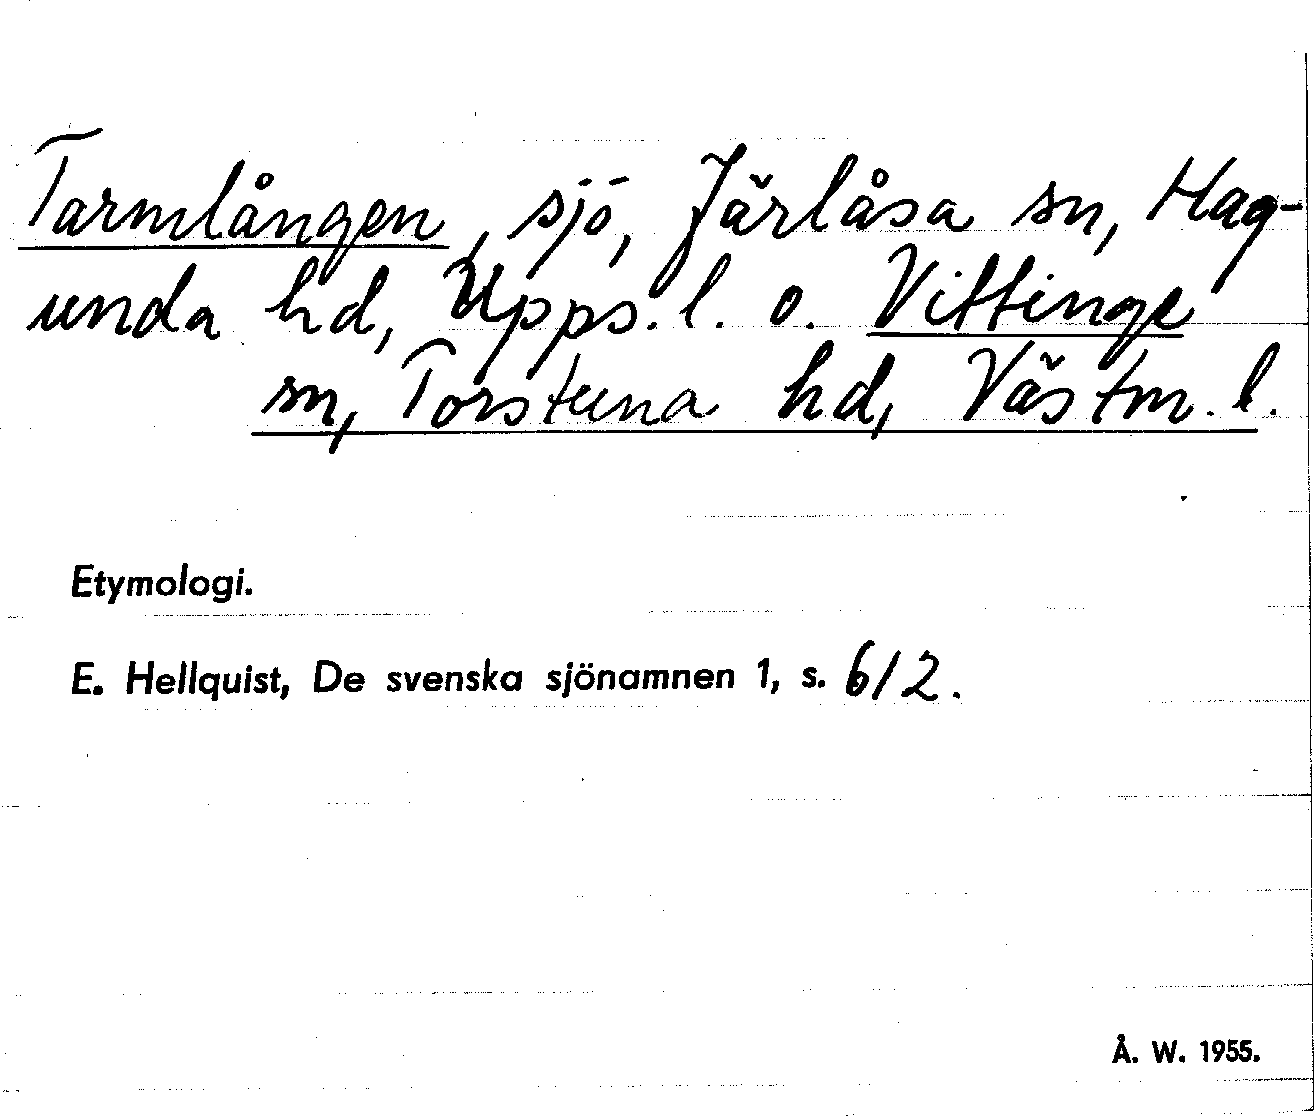 Tarmlången, sjö, Järlåsa sn, Hag-
unda hd, Upps. l. o. Vittinge
sn, Torstuna hd, Västm. l.
Etymologi.
E. Hellquist, De svenska sjönamnen 1, s. 612.
Å. W. 1955.